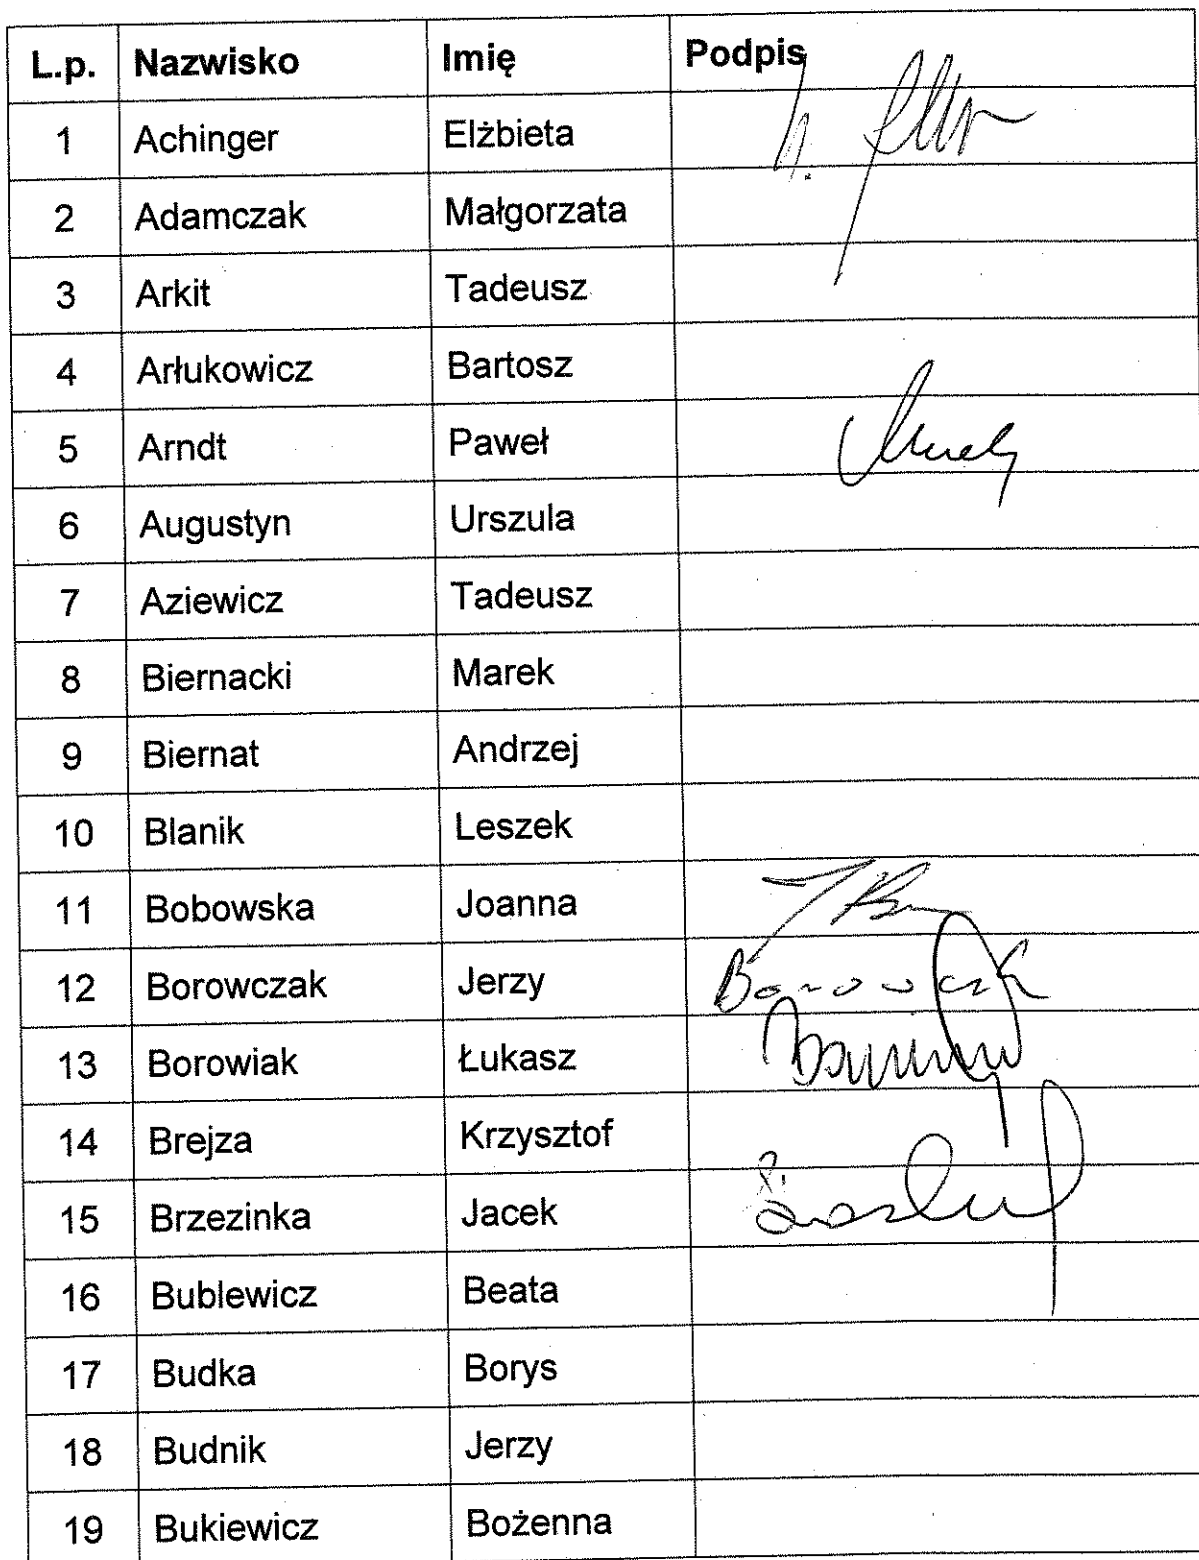 L.p. Nazwisko Imię Podpis
1 Achinger Elżbieta
2 Adamczak Małgorzata
3 Arkit Tadeusz
4 Arłukowicz Bartosz
5 Arndt Paweł
6 Augustyn Urszula
7 Aziewicz Tadeusz
8 Biernacki Marek
9 Biernat Andrzej
10 Blanik Leszek
11 Bobowska Joanna
12 Borowczak Jerzy Borowczak
13 Borowiak Łukasz
14 Brejza Krzysztof
15 Brzezinka Jacek
16 Bublewicz Beata
17 Budka Borys
18 Budnik Jerzy
19 Bukiewicz Bożenna